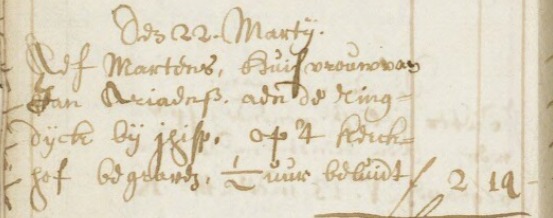 Den 22. Martij.
Aef Martens, Huijsvrouw van
Jan Ariaensz. aen de Ring=
dyck bij jhisp. op 't kerck=
hof begraven, ½ uur beluijdt / 2 19 -